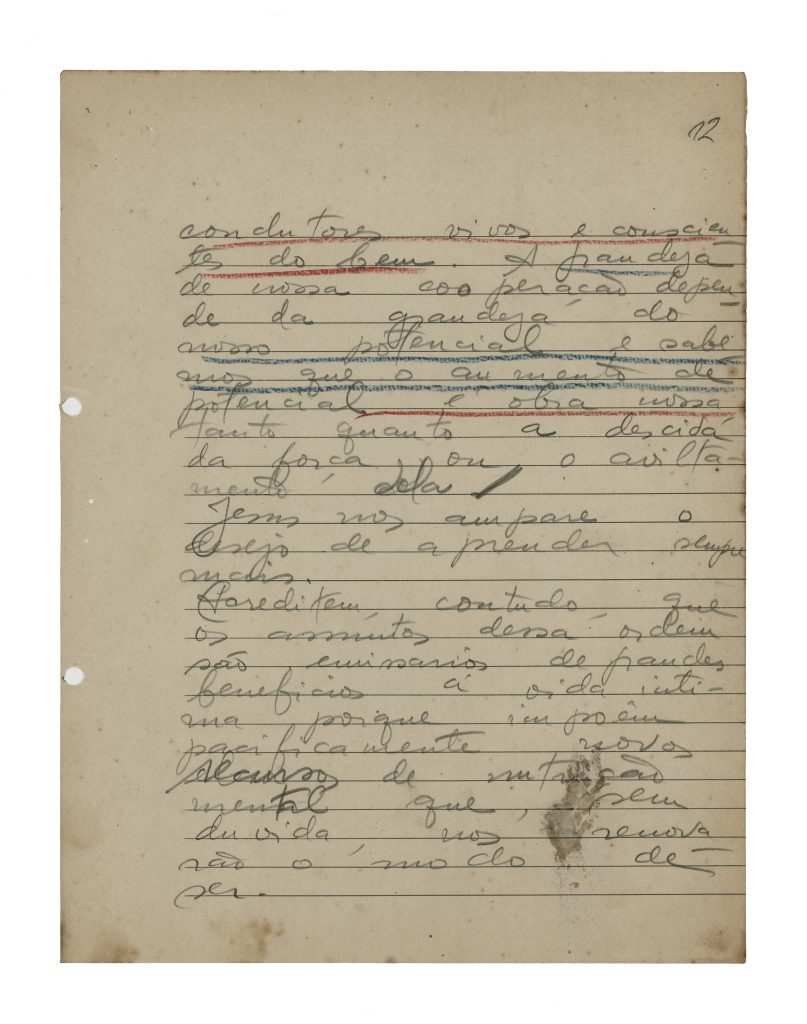 12
condutores vivos e conscien
tes do bem. A grandeza
de nossa cooperação depen
de da grandeza do
nosso potencial e sabe
mos que o aumento de
potencial é obra nossa
tanto quanto a descida
da força ou o avilta-
mento dela
Jesus nos ampare o
desejo de aprender sempre
mais.
Acreditem, contudo, que
os assuntos dessa ordem
são emissarios de grandes
beneficios á vida inti-
ma porque impoem
pacificamente novos
recursos de nutrição
mental que, sem
duvida, nos renova
rão o modo de
ser.